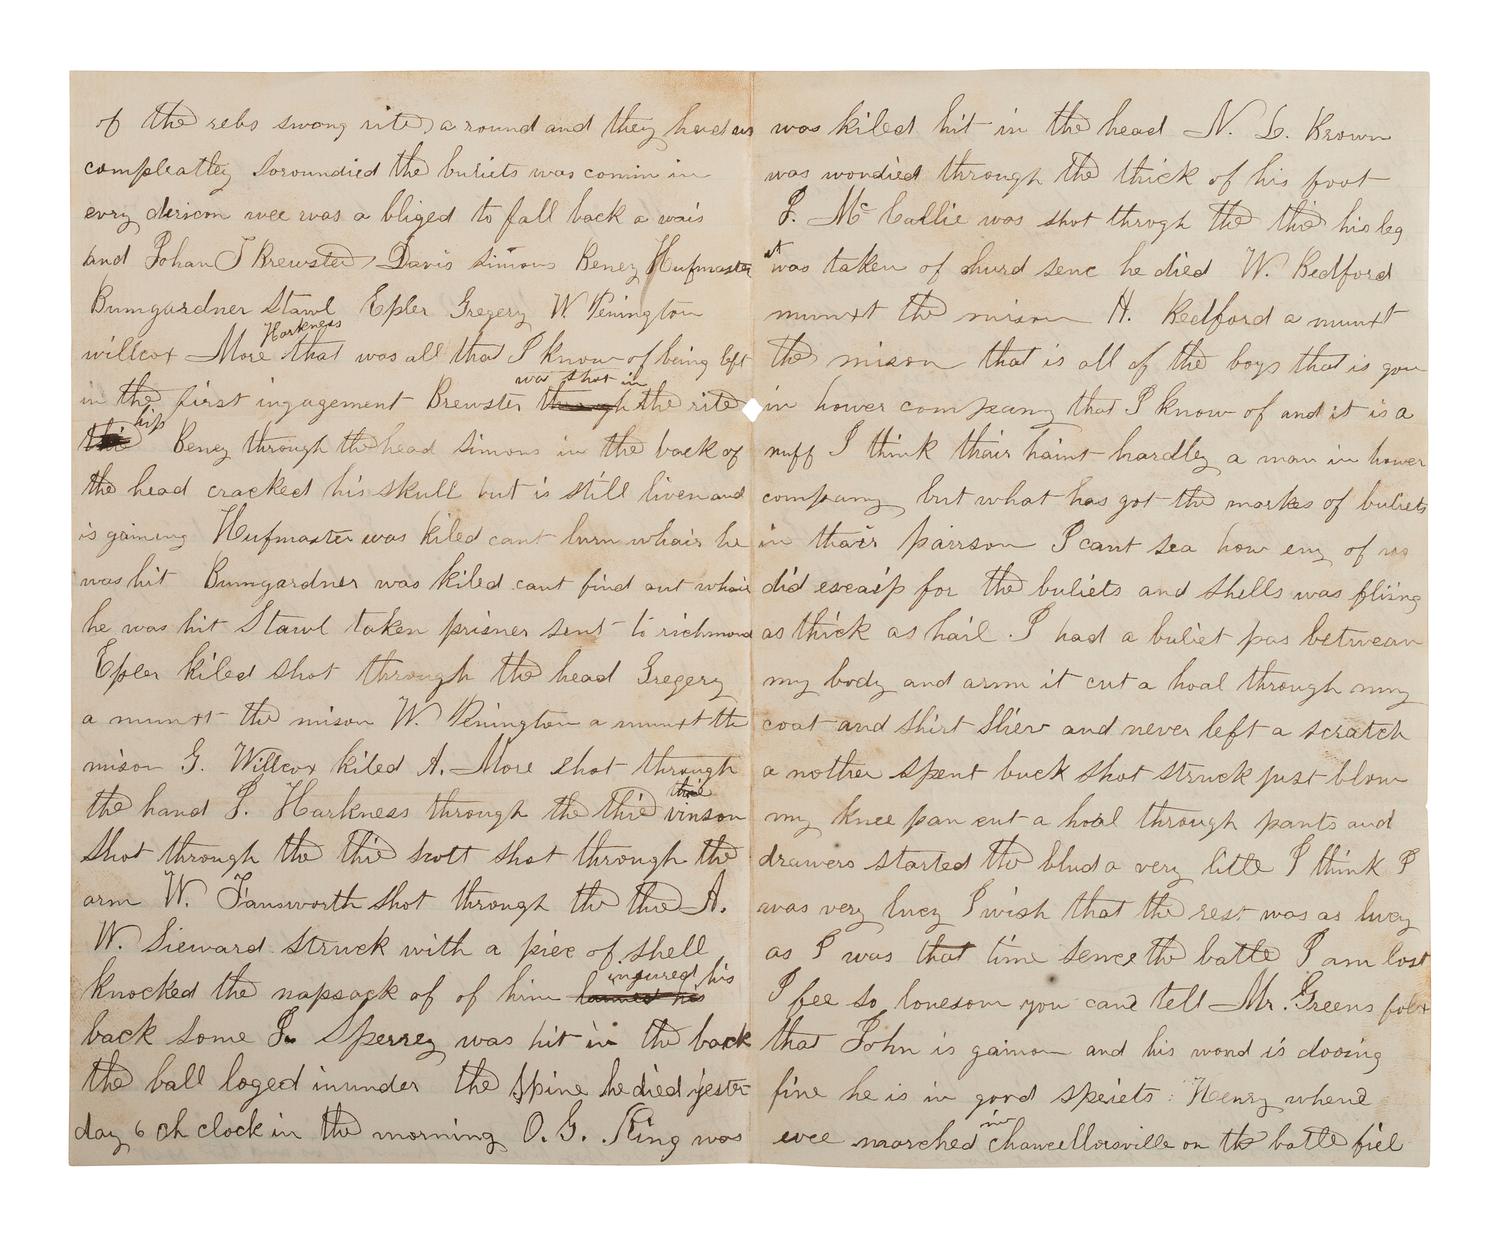 of the rebs swong rite a round and they had us
compleatley Soroundied the buliets was comin in
evry diricon wee was a bliged to fall back a wais
and Johan T Brewsted Davis simons Beney Hufmaster
Bumgardner Stawl Epler Gregery W. Penington
Harkness
willcox More that was all that I know of being left
was shot in
in the first ingagement Brewster through the rite
hip
thie Beney through the head simons in the back of
the head cracked his skull but is still liven and
is gaining Hufmaster was kiled cant lurn whair he
was hit Bumgardner was kiled cant find out whair
he was hit Stawl taken prisner sent to richmond
Epler kiled shot through the head Gregery
a munxt the mison W. Penington a munxt the
mison G. Willcox kiled A. More shot through
the hand J. Harkness through the thie vinson
shot through the thie scott shot through the
arm W. Fansworth shot through the thie A.
W. Sieward struck with a piec of shell
ingured his
knocked the napsack of of him his
back some J. Sperrey was hit in the back
the ball loged inunder the spine he died yester
day 6 oh clock in the morning O. G. King was
was kiled hit in the head N. L. Brown
was wondied through the thick of his foot
J. McCallie was shot throgh the thie his leg
at
was taken of hurd senc he died W. Bedford
munxt the mison H. Bedford a munxt
the mison that is all of the boys that is gon
in hower company that I know of and it is a
nuff I think thair haint hardley a man in hower
company but what has got the markes of buliets
in thair pairson I cant sea how eny of us
did escaip for the buliets and shells was fliing
as thick as hail I had a buliet pas betwean
my body and arm it cut a hoal through my
coat and shirt sliev and never left a scratch
a nother spent buck shot struck just blow
my knee pan cut a hoal through pants and
drawers started the blud a very little I think I
was very lucy I wish that the rest was as lucy
as I was that time sence the batle I am lost
I fee so lonesom you cand tell Mr. Greens folks
that John is gainon and his wond is dooing
fine he is in good speiets Henry whend
in
wee marched chancellorsville on the batle fiel